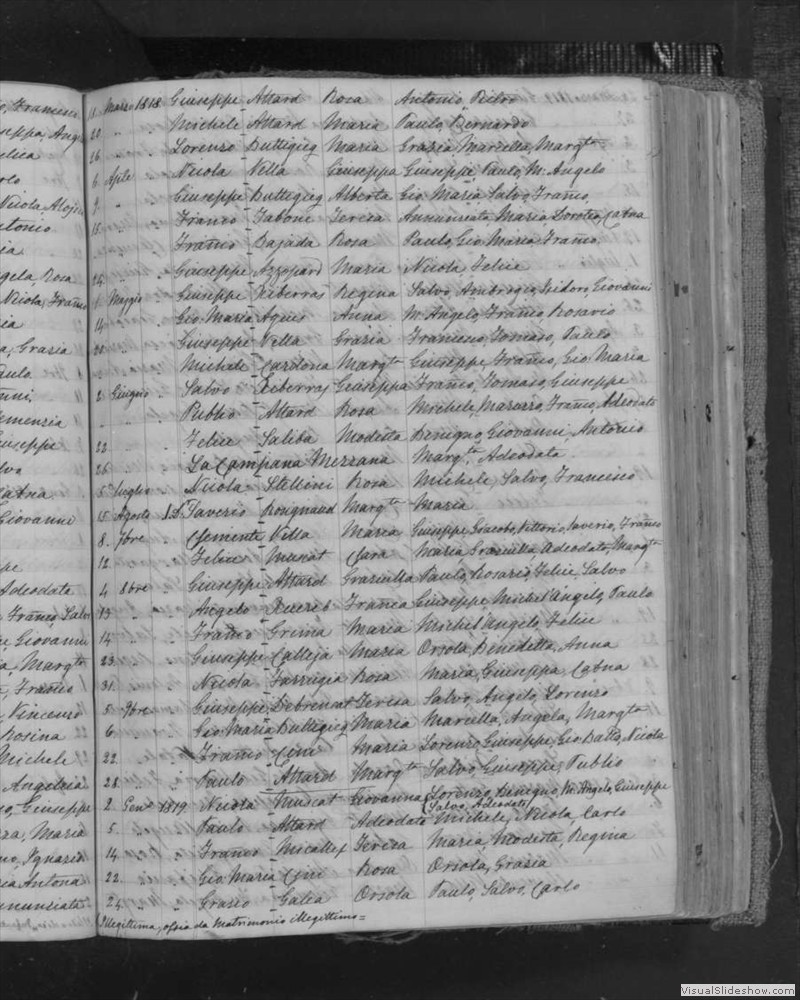 o, Francesco
seppa, Ang
elica
rlo
Nicola, Alojs
ntonio
ia
ngela, Rosa
Nicola, Franco
ria
a, Grazia
aula
nni,
emenzia
iuseppe
lva
Catna
Giovanni
pe
Adeodata
Franco, Salv
e Giovanni
a, Margta
e, Franco
, Vincenzo
Rosina
Michele
Angelica
o, Giuseppe
za, Maria
no, Ignazio
ia Antona
nunziata
18 Marzo 1818 Giuseppe Attard Rosa Antonio, Pietro
20 " Michele Attard Maria Paulo, Bernardo
26 " Lorenzo Buttigieg Maria Grazia Marcella, Margta
6 Aple Nicola Vella Giuseppa Giuseppe, Paulo, M. Angelo
9 " Giuseppe Buttigieg Alberta Gio Maria Salvo, Franco
15 Franco Tabone Teresa Annunciata, Maria Dorotea, Catna
" Franco Bajada Rosa Paulo, Gio Maria, Franco
24 Giuseppe Azzopard Maria Nicola, Felice
1 Maggio Giuseppe Xiberras Regina Salvo, Ambrogio, Isidoro, Giovanni
14 " Gio Maria Agius Anna M. Angelo, Franco, Rosario
20 " Giuseppe Vella Grazia Francesco, Tomaso, Paulo
" Michele Cardona Margta Giuseppe, Franco, Gio Maria
2 Giugno Salvo Xiberras Giuseppa Franco, Tomaso, Giuseppe
" Publio Attard Rosa Michele, Franco, Adeodato
22 " Felice Saliba Modesta Benigno, Giovanni, Antonio
26 " La Campana Mezzana Margta Adeodata
5 Luglio Nicola Stellini Rosa Michele, Salvo, Francesco
15 Agosto 1.D. Saverio Rougnaud Margta Maria
8 7bre Clemente Vella Maria Giuseppe, Giacobo, Vittorio, Saverio, Franco
12 Felice Muscat Clara Maria Graziulla Adeodata, Margta
4 8bre Giuseppe Attard Graziulla Paulo, Rosario, Felice, Salvo
13 " Angelo Xuereb Franca Giuseppe, Michel'angelo, Paulo
14 " Franco Grima Maria Michel'angelo, Felice
23 Giuseppe Calleja Maria Orsola, Benedetta, Anna
31 " Nicola Farrugia Rosa Maria, Giuseppa, Catna
5 9bre Giuseppe Debrincat Teresa Salvo, Angelo, Lorenzo
6 Gio Maria Buttigieg Maria Marcella, Angela, Margta
22 " Franco Cini Maria Lorenzo, Giuseppe, Gio Batta, Nicola
28 " Paulo Attard Margta Salvo, Giuseppe, Publio
2 Genº 1819 Nicola Muscat Giovanna Lorenzo, Benigno, M. Angelo, Giuseppe
(Salvo, Adeodato
5 " Paulo Attard Adeodata Michele, Nicola, Carlo
14 " Franco Micallef Teresa Maria, Modesta, Regina
22 " Gio Maria Cini Rosa Orsola, Grazia
24 " Grazio Galea Orsola Paulo, Salvo, Carlo
Illegittima, ossia da Matrimonio Illegittimo =
VisualSlideshow.com